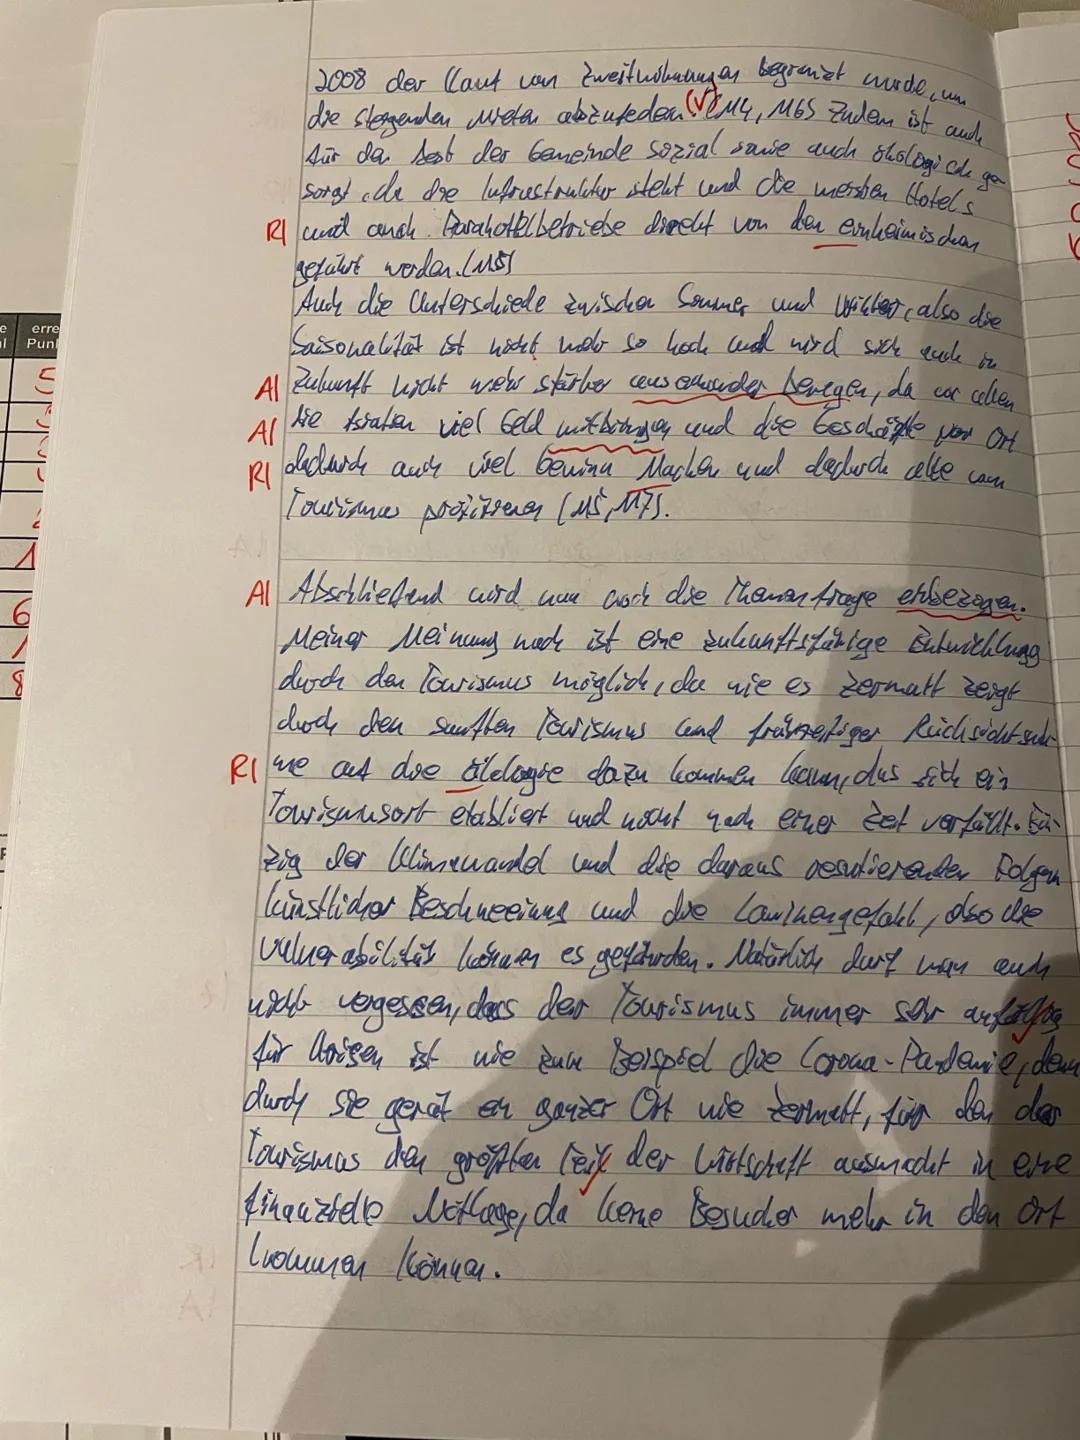 2008 der Kauf von Zweitwohnungen begrenzt wurde, um
die steigenden Mieten abzufedern. (V) (M4, M6) Zudem ist auch
für den Rest der Gemeinde sozial sowie auch ökologisch ge-
sorgt, da die Infrastruktur steht und die meisten Hotels
R| und auch Parahotelbetriebe direkt von den einheimischen
geführt werden. (M5)
Auch die Unterschiede zwischen Sommer und Winter, also die
Saisonalität ist nicht mehr so hoch und wird sich auch in
A| Zukunft nicht mehr stärker auseinander bewegen, da vor allem
A| die viel Geld mitbringen und die Geschäfte vor Ort
R| dadurch auch viel Gewinn Machen und dadurch alle vom
Tourismus profitieren (M5, M7).
A| Abschließend wird nun noch die Themenfrage einbezogen.
Meiner Meinung nach ist eine zukunftsfähige Entwicklung
durch den Tourismus möglich, da wie es Zermatt zeigt
durch den sanften Tourismus und frühzeitiger Rücksichtnah-
R| me auf die öklogie dazu kommen kann, das sich ein
Tourismusort etabliert und nicht nach einer Zeit verfällt. Ein-
zig der Klimawandel und die daraus resultierenden Folgen
künstlicher Beschneeiung und die Lawinengefahr, also die
Vulnerabilität können es gefährden. Natürlich darf man auch
nicht vergessen, dass der Tourismus immer sehr anfällig
für Krisen ist wie zum Beispiel die Corona-Pandemie, denn
durch sie gerät ein ganzer Ort wie Zermatt, für den der
Tourismus den größten Teil der Wirtschaft ausmacht in eine
finanzielle Notlage, da keine Besucher mehr in den Ort
kommen können.
e erre
al Punk
5
1
6
1
8